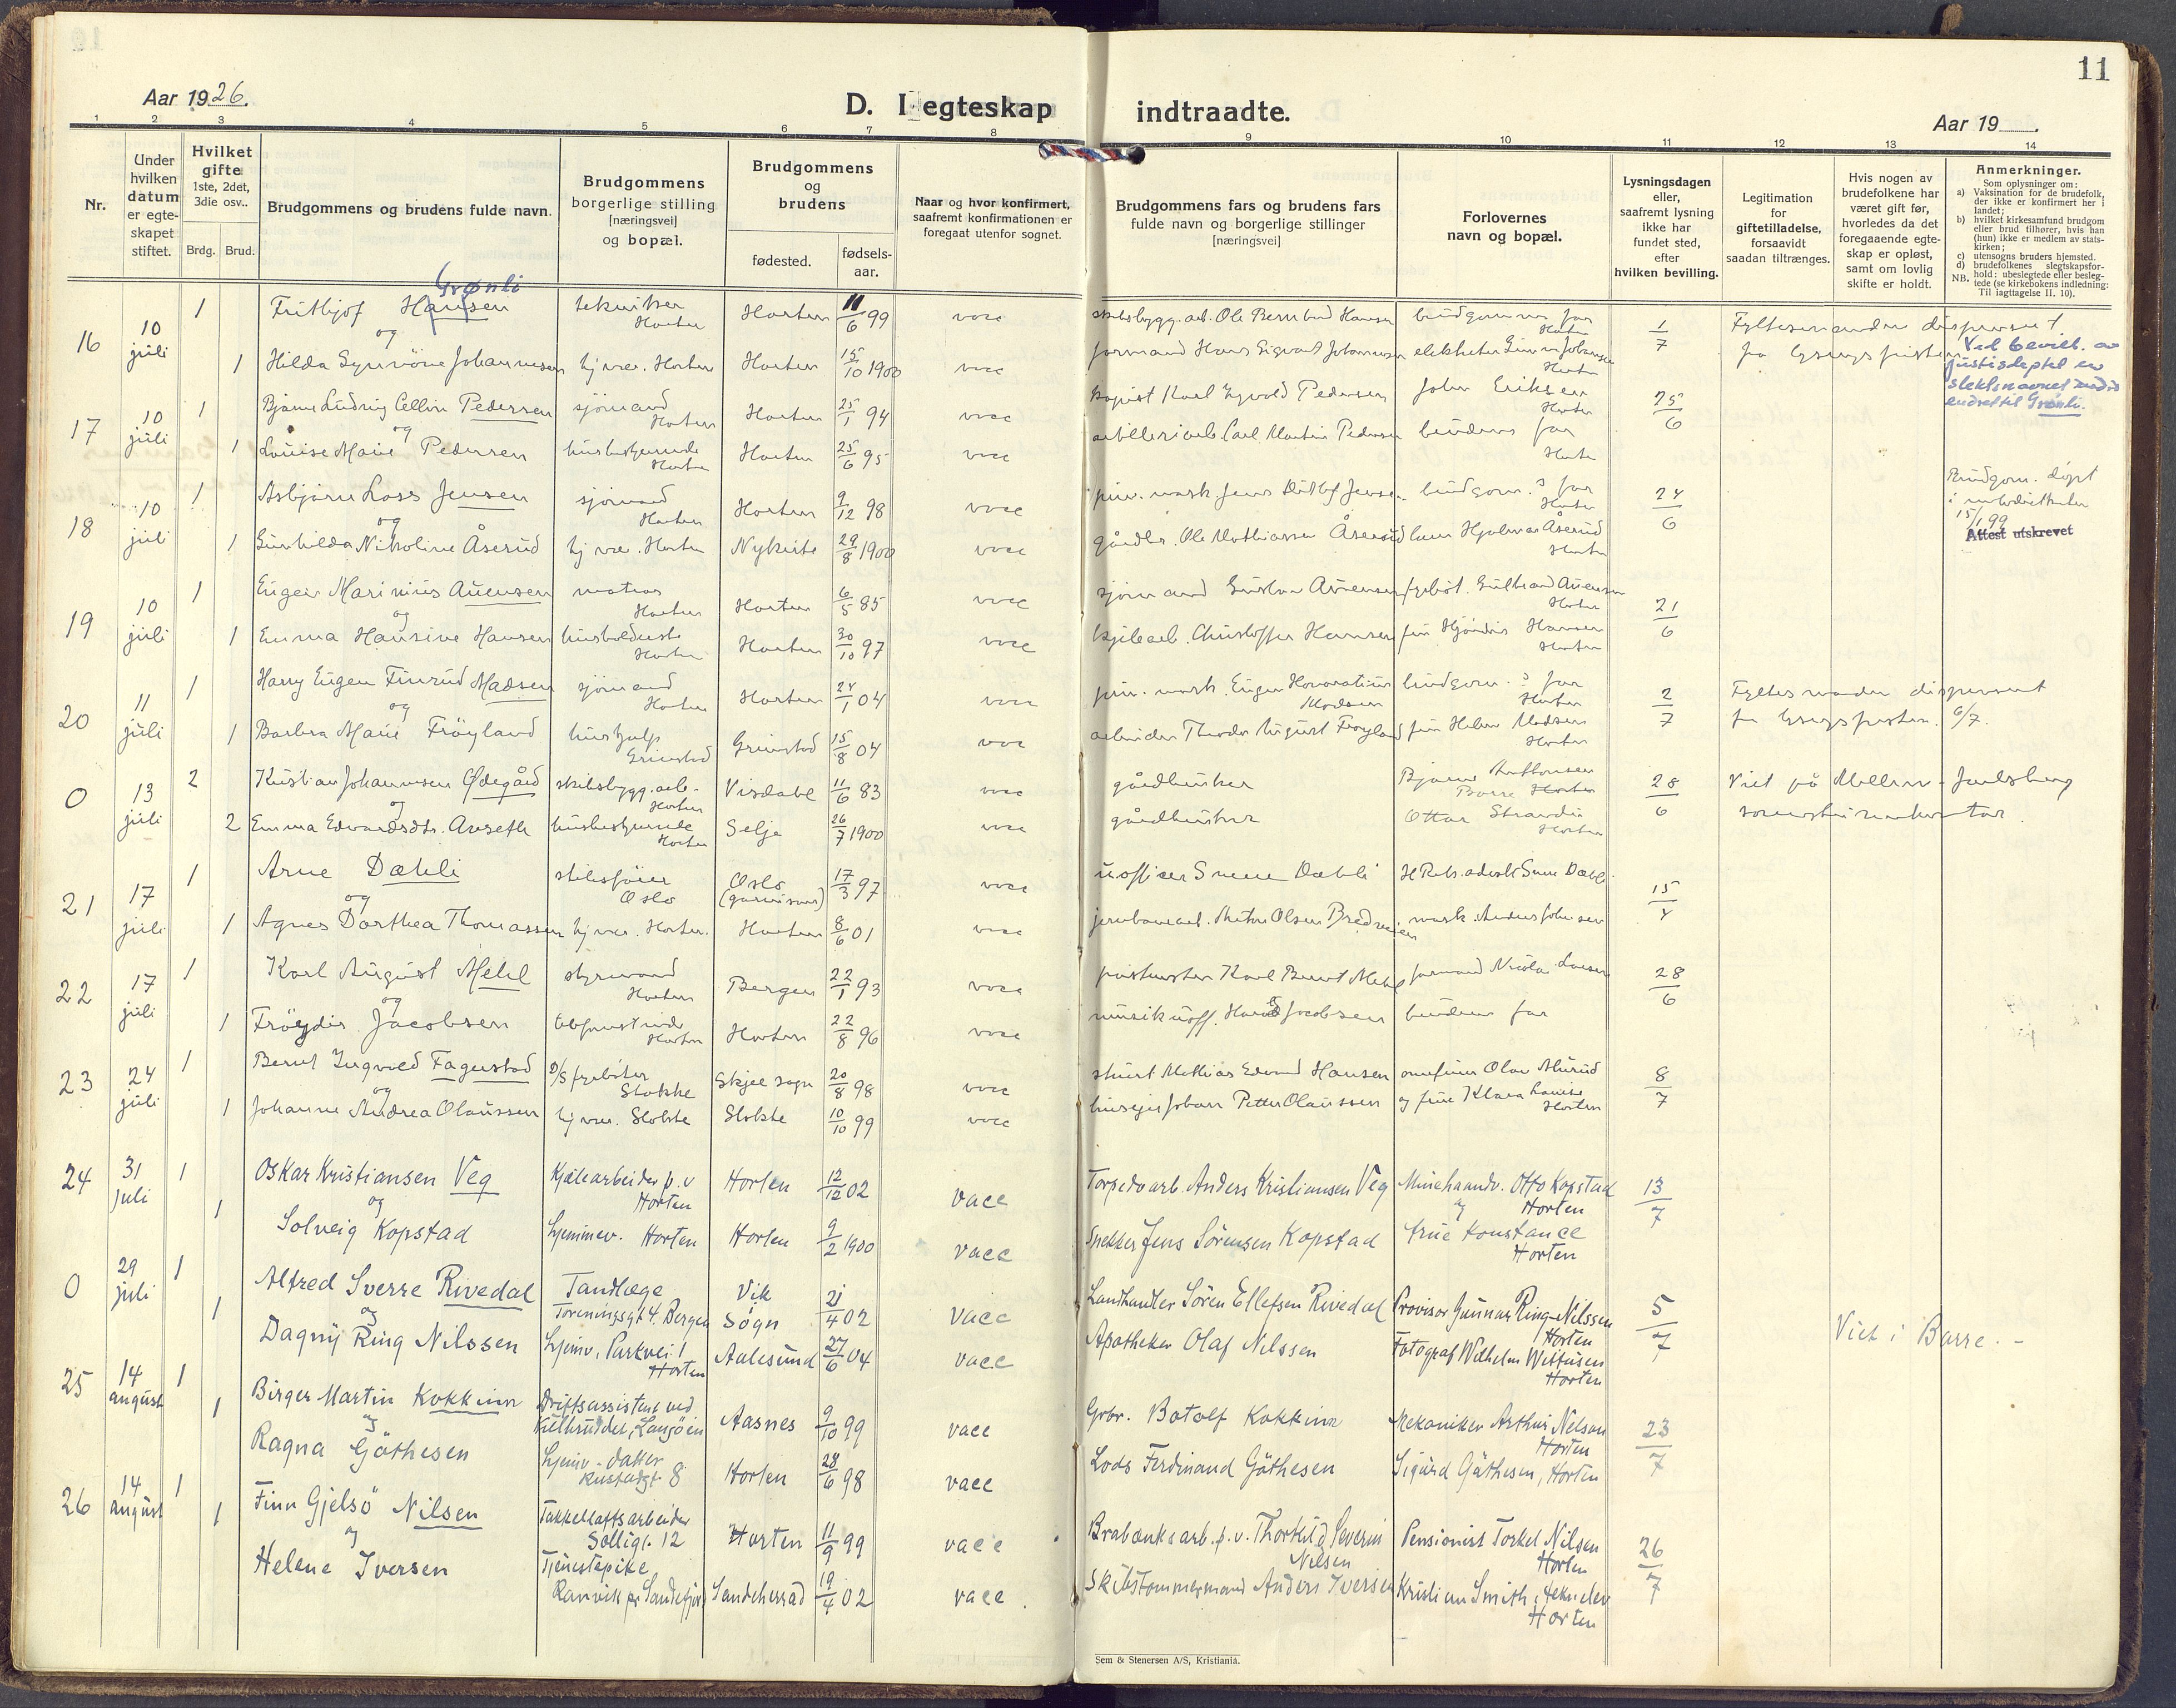 11
Aar 1926.
D. I egteskap indtraadte.
Aar 19
1 2 3 4 5 6 7 8 9 10 11 12 13 14
Nr.
Under hvilken datum er egteskapet stiftet.
Hvilket gifte 1ste, 2det, 3die osv..
Brdg. Brud.
Brudgommens og brudens fulde navn.
Brudgommens borgerlige stilling [næringsvei] og bopæl.
Brudgommens og brudens
fødested.
fødsels-aar.
Naar og hvor konfirmert, saafremt konfirmationen er foregaat utenfor sognet.
Brudgommens fars og brudens fars fulde navn og borgerlige stillinger [næringsvei]
Forlovernes navn og bopæl.
Lysningsdagen eller, saafremt lysning ikke har fundet sted, efter hvilken bevilling.
Legitimation for giftetilladelse, forsaavidt saadan tiltrænges.
Hvis nogen av brudefolkene har været gift før, hvorledes da det foregaaende egteskap er opløst, samt om lovlig skifte er holdt.
Anmerkninger.
Som oplysninger om:
a) Vaksination for de brudefolk, der ikke er konfirmert her i landet;
b) hvilket kirkesamfund brudgom eller brud tilhører, hvis han (hun) ikke er medlem av statskirken;
c) utensogns bruders hjemsted.
d) brudefolkenes slegtskapsforhold: ubeslegtede eller beslegtede (se kirkebokens indledning: Til iagttagelse II. 10).
NB.
Grønli
16 10 juli 1 Frithjof Hansen tekniker Horten Horten 11/6 99 vacc skibsbygg. arb. Ole Bernhard Hansen brudgommens far Horten 1/7
og
1 Hilda Synnöve Johannesen hj. vær. Horten Horten 15/10 1900 vacc formand Hans Sigvart Johannesen
Ved bevill. av justisdeptet er slektsnavnet endret til Grønli.
17 10 juli 1 Bjarne Ludvig Cellin Pedersen sjömand Horten Horten 25/1 94 vacc Karl Pedersen John Eriksen Horten 25/6
og
1 Louise Marie Pedersen husbestyrende Horten Horten 25/6 95 vacc artilleriarb. Carl Martin Pedersen brudens far Horten
18 10 juli 1 Asbjörn Loss Jensen sjömand Horten Horten 9/12 98 vacc brudgom.s far Horten 24/6
og
1 Gunhilda Nikoline Åserud hj vær. Horten Nykirke 29/8 1900 vacc gårdbr. Ole Mathiassen Åserud Hjalmar Åserud Horten
Brudgom. döpt i
15/1 99
Attest utskrevet
19 10 juli 1 Eugen Marinius Auensen matros Horten Horten 6/5 85 vacc sjömand Gustav Auensen fyrböt. Auensen Horten 21/6
og
1 Emma Hansine Hansen husholderske Horten Horten 30/10 97 vacc kjelearb. Christoffer Hansen fru Hjördis Hansen Horten
20 11 juli 1 Harry Eugen Finrud Madsen sjömand Horten Horten 24/1 04 vacc Eugen Honoratius Madsen brudgom.s far Horten 2/7
og
1 Barbra Marie Fröyland hushjelp Grimstad Grimstad 15/8 04 vacc arbeider Theodor August Fröyland fru Helene Madsen Horten
6/7.
0 13 juli 2 Kristian Johannesen Ødegård skibsbygg. arb. Horten Visdal 11/6 83 vacc gårdbruker Bjarne Borre Horten 28/6
og
2 Emma Edvardsdtr. Avseth husbestyrende Horten Selje 26/7 1900 vacc gårdbruker Ottar Strandin Horten
Viet på
21 17 juli 1 Arne Dæhli skibsförer Oslo Oslo (garnisons) 17/3 97 vacc uofficer Dæhli 15/4
og
1 Agnes Dorthea Thomassen hj vær. Horten. Horten 8/6 01 vacc jernbanearb. Olsen Anders Johnsen
22 17 juli 1 Karl August Mehl styrmand Horten Bergen 22/1 93 vacc Karl Bernt Mehl formand Nicolai Larsen 28/6
og
1 Fröydis Jacobsen Horten Horten 22/8 96 vacc musikuoff. Jacobsen brudens far
23 24 juli 1 Bernt Ingvald Fagerstad D/S fyrböter Stokke Skjee sogn 20/8 98 vacc Mathias Edvard Hansen Olav 8/7
og
1 Johanne Andrea Olaussen hj vær. Stokke Stokke 10/10 99 vacc huseier Johan Petter Olaussen og frue Klara Louise Horten
24 31 juli 1 Oskar Kristiansen Veg Kjelearbeider p. v Horten Horten 12/12 02 vacc Torpedoarb. Anders Kristiansen Veg Minehaandv. Otto Kopstad Horten 13/7
og
1 Solveig Kopstad hjemmev. Horten Horten 9/2 1900 vacc Snekker Jens Sörensen Kopstad og frue Konstance Horten
0 29 juli 1 Alfred Sverre Rivedal Tandlæge Foreningsgt 4. Bergen Vik Sogn 21/4 02 vacc Landhandler Sören Ellefsen Rivedal Provisor Gunnar Ring-Nilssen Horten 5/7
og
1 Dagny Ring Nilssen hjemv. Parkvei 1 Horten Aalesund 27/6 04 vacc Apotheker Olaf Nilssen Fotograf Wilhelm Horten
Viet i Borre. -
25 14 august 1 Birger Martin Kokkinn Driftsassistent ved Aasnes 9/10 99 vacc Grbr. Botolf Kokkinn Mekaniker Arthur Nelson Horten 23/7
og
1 Ragna Göthesen hjemv - datter 8 Horten 28/6 98 vacc Lods Ferdinand Göthesen Sigurd Göthesen, Horten
26 14 august 1 Finn Gjelsö Nilsen Takkelloftsarbeider Solligt. 12 Horten 11/9 99 vacc Brabænksarb. p. v. Thorkild Severin Nilsen Pensionist Torkel Nilsen Horten 26/7
og
1 Helene Iversen Tjenestepike Ranvik pr Sandefjord Sandeherred 19/4 02 vacc. Skibstømmermand Anders Iversen Kristian Smith, Horten
Sem & Stenersen A/S, Kristiania.